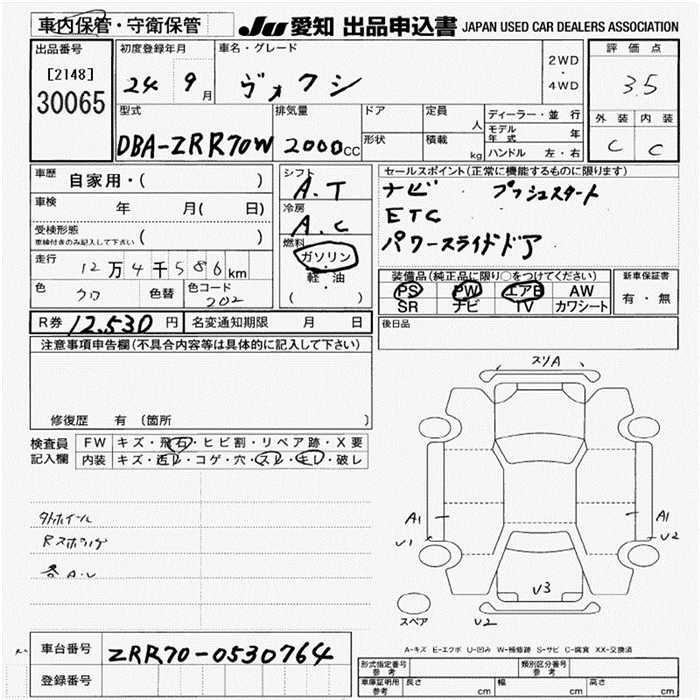 車内保管・守衛保管
JU 愛知 出品申込書 JAPAN USED CAR DEALERS ASSOCIATION
出品番号
[2148]
30065
初度登録年月
24 9月
車名・グレード
ヴォクシ
2WD
・
4WD
評価点
3.5
外装 内装
C C
型式
DBA-ZRR70W
排気量
2000cc
ドア
形状
定員 人
積載 kg
ディーラー・並行
モデル年式 年
ハンドル 左・右
車歴 自家用・( )
車検 年 月( 日)
受検形態
車検付きのみ記入して下さい ( )
走行 12万4千586km
色 クロ 色替 色コード 202
シフト
A.T
冷房
A.C
燃料
ガソリン
・
軽・油
( )
セールスポイント(正常に機能するものに限ります)
ナビ プッシュスタート
ETC
パワースライドドア
装備品(純正品に限り○をつけてください)
PS PW エアB AW
SR ナビ TV カワシート
新車保証書
有・無
R券 12.530円 名変通知期限 月 日
後日品
注意事項申告欄(不具合内容等は具体的に記入して下さい)
修復歴 有 (箇所 )
検査員記入欄
FW キズ・飛石・ヒビ割・リペア跡・X要
内装 キズ・汚レ・コゲ・穴・スレ・キレ・破レ
外ホイール
各A.U
スリA
A1
U1
A1
U2
U3
U2
スペア
A-キズ E-エクボ U-凹み W-補修跡 S-サビ C-腐食 XX-交換済
車台番号 ZRR70-0530764
登録番号
形式指定番号 参考
類別区分番号 参考
車庫証明用 参考 長さ cm 幅 cm 高さ cm